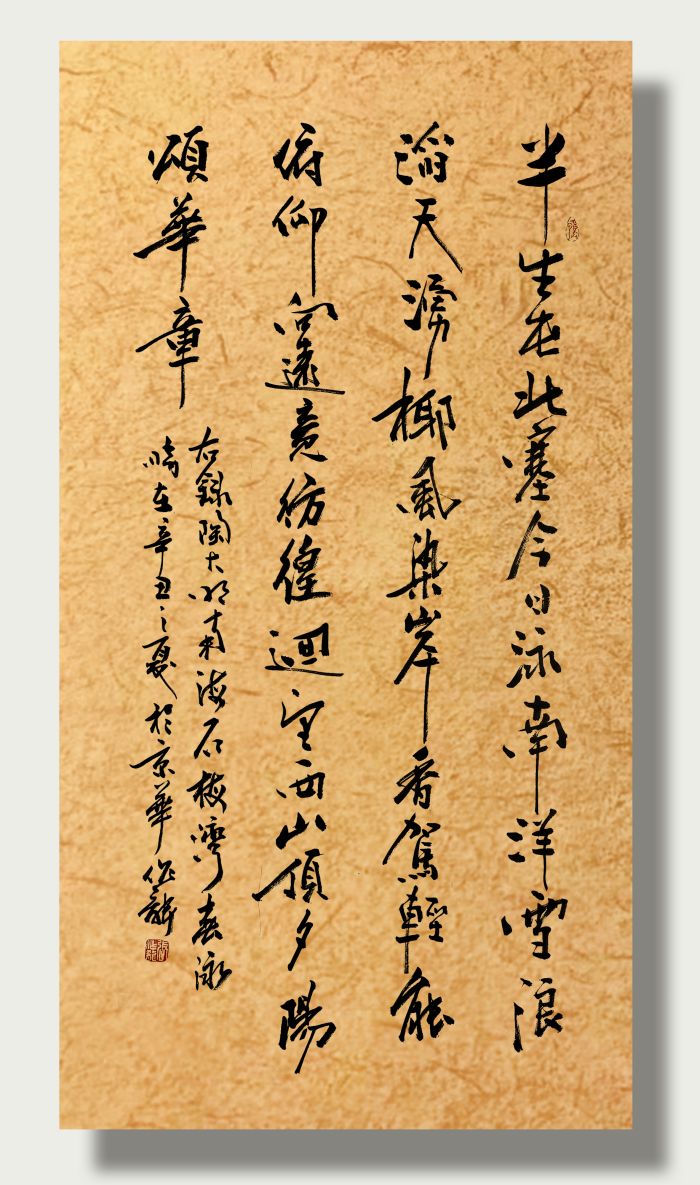 半生在北塞今日泳南洋雪浪
滔天湧椰風染岸香駕輕能
俯仰向遠竟彷徨迴望西山頂夕陽
頌華章
右錄陶大明南海石梅灣春泳
時在辛丑之夏於京華作龍